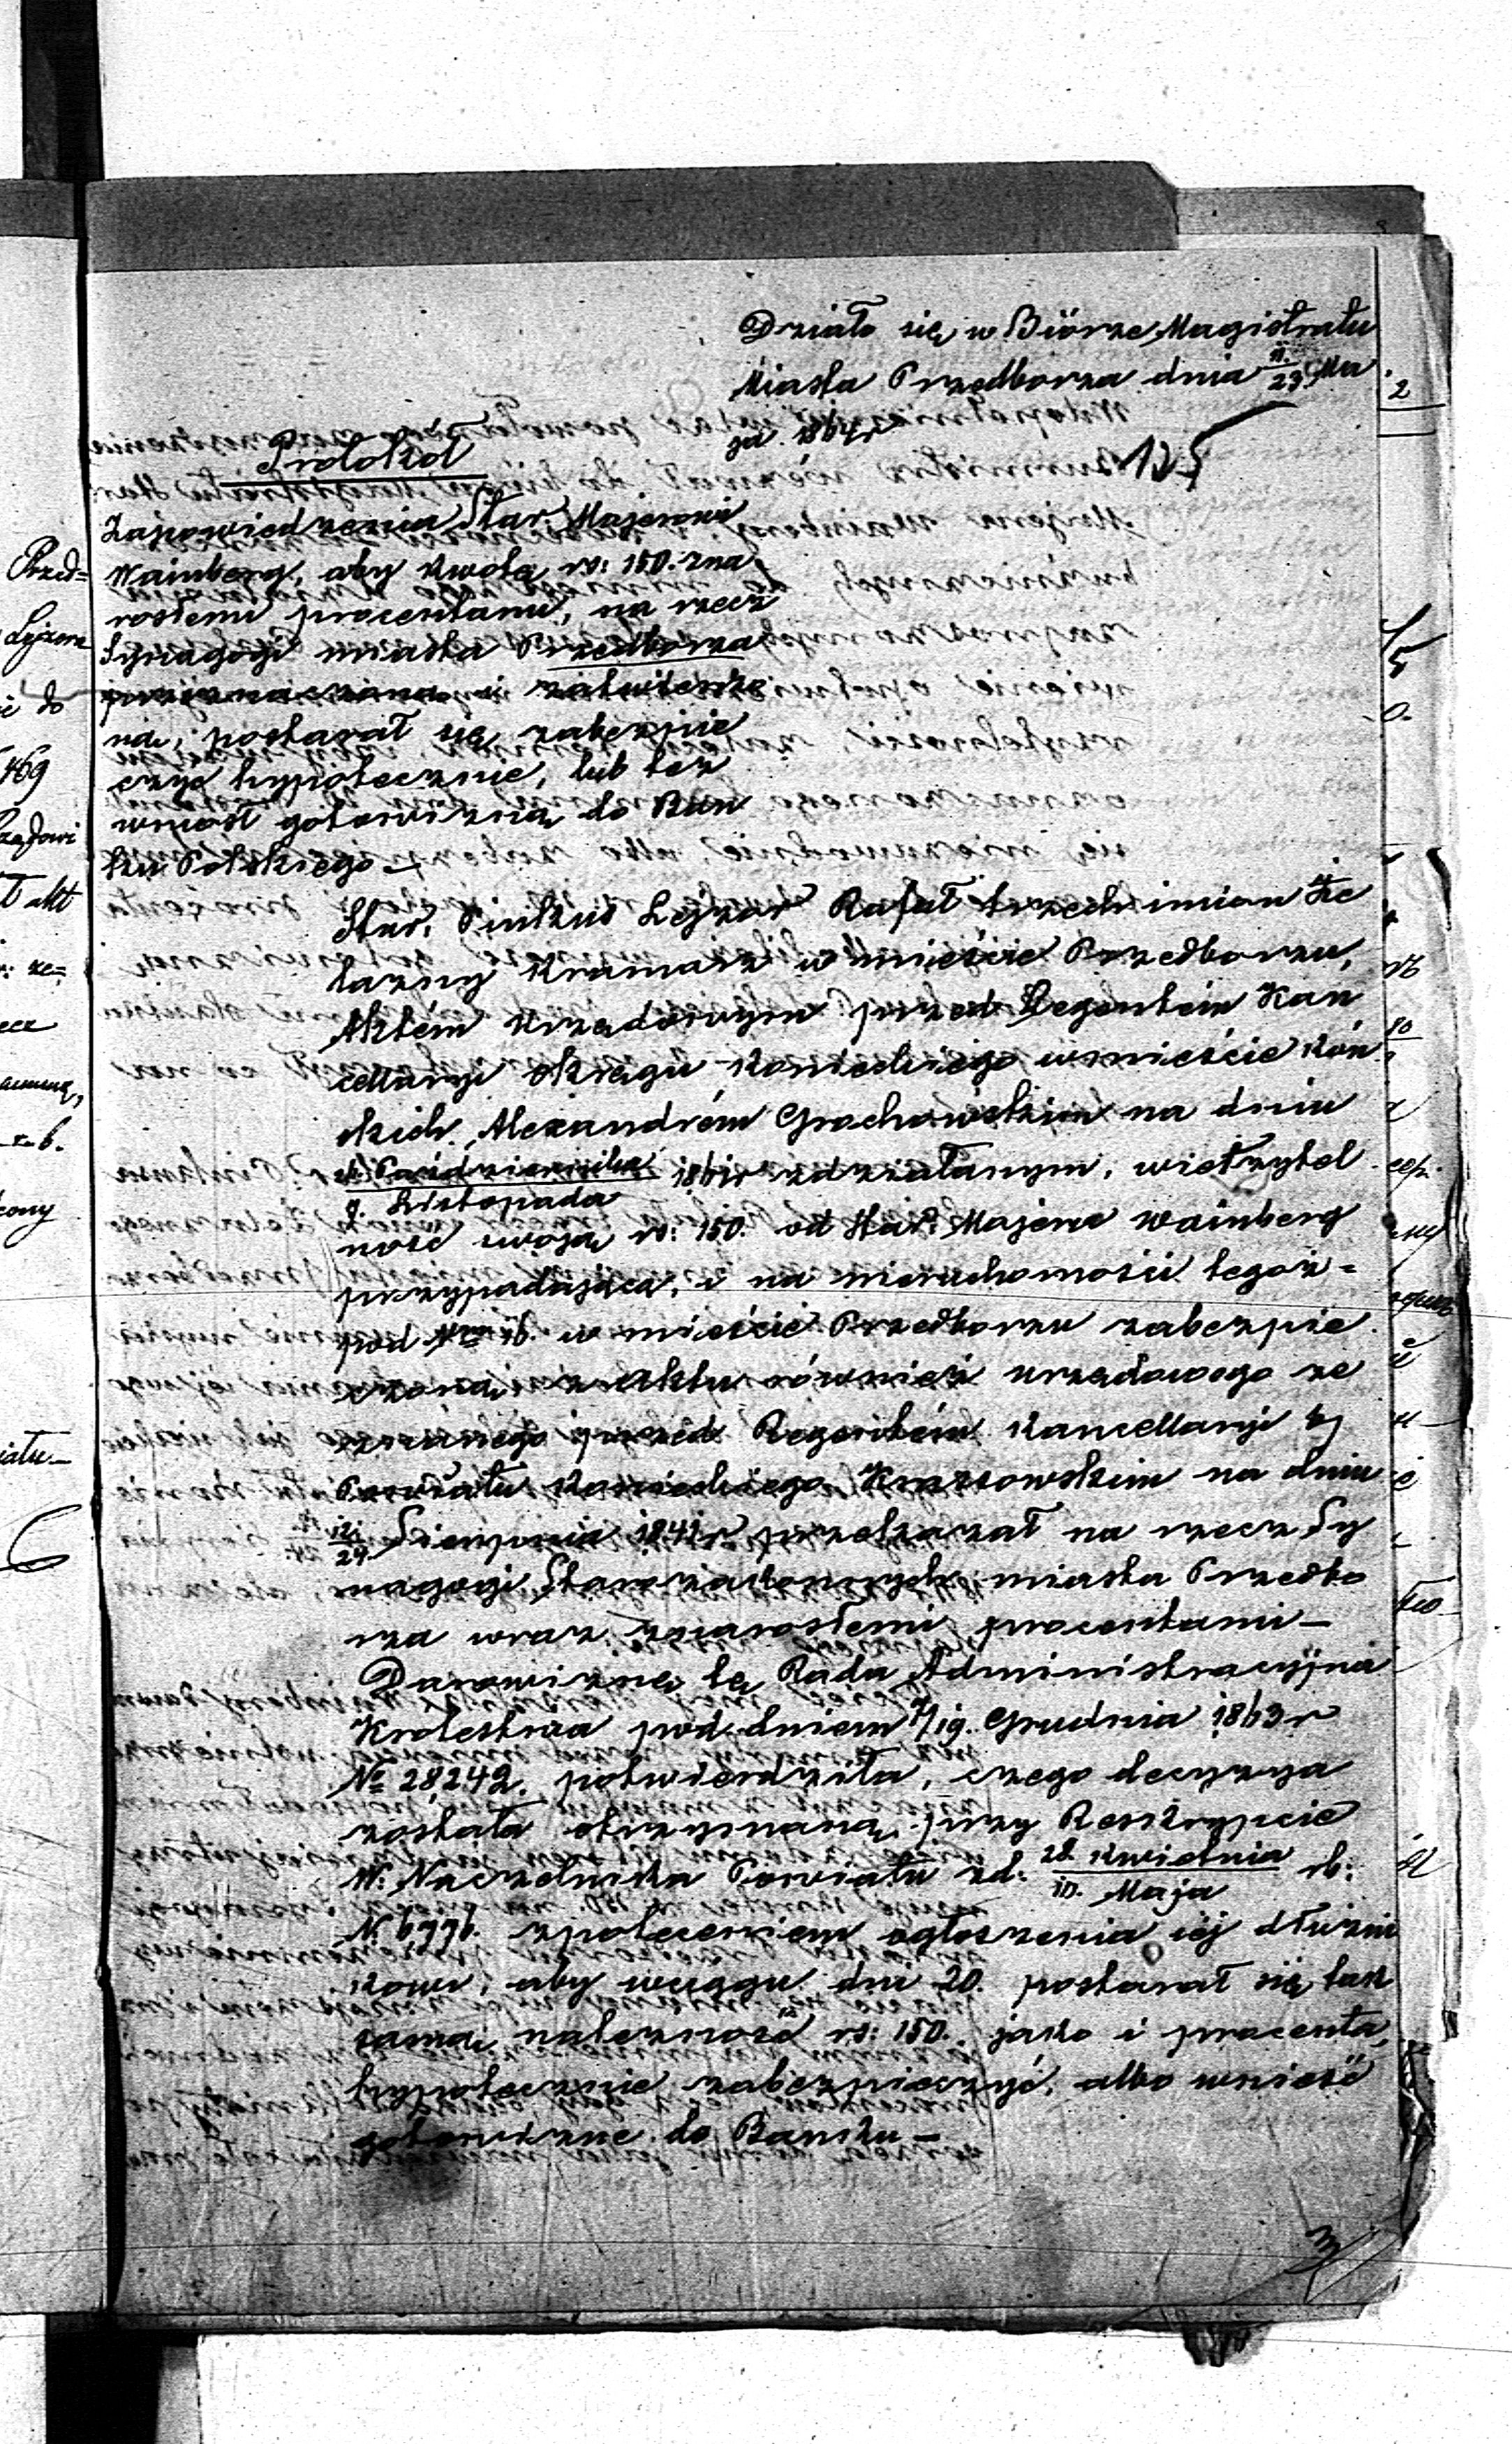 Działo się w Biórze Magistratu
Miasta Przedborza dnia 11/23 Ma
ja 1864 r
125
Protokół
Zapowiedzenia Star. Majerowi
Wainberg, aby kwotę rs: 150. z na
rosłemi procentami, na rzecz
Synagogi miasta Przedborza
przeznaczoną i zatwierdzo
ną, postarał się zabezpie
czyć hypotecznie, lub też
wniósł gotowizną do Ban
ku Polskiego —
Star. Pinkus Lejzor Rafał trzech imion Że
lazny Kramarz w mieście Przedborzu,
Aktem Urzędowym przed Regentem Kan
cellaryi Okręgu Koneckiego w mieście Koń
skich Alexandrem Grochowskim na dniu
Października
9. Listopada 1861r zdziałanym, wierzytel
ność swoją rs: 150. od Star. Majera Wainberg
przypadającą, i na nieruchomości tegoż =
pod Nrem 16. w mieście Przedborzu zabezpie
czoną z aktu również urzędowego ze
znanego przed Regentem Kancellaryi tej
Powiatu Koneckiego Krassowskim na dniu
12/24 Sierpnia 1841r przekazał na rzecz Sy
nagogi Starozakonnych miasta Przedbo
rza wraz z narosłemi procentami —
Darowiznę tę Rada Administracyjna
Krolestwa pod dniem 7/19. Grudnia 1863 r
No 28,242. potwierdziła, czego decyzya
została otrzymaną przy Reskrypcie
W. Naczelnika Powiatu zd: 28. Kwietnia
10. Maja rb:
N. 6,776. z poleceniem ogłoszenia jej dłużni
kowi, aby w ciągu dni 20. postarał się tak
samą należność rs: 150. jako i procenta,
hypotecznie zabezpieczyć, albo wnieść
gotowiznę do Banku —
3